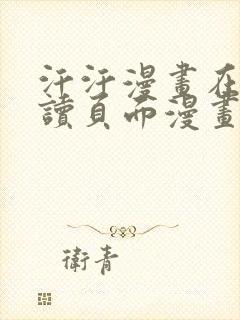 汗汗漫畫在
讀頁面漫畫
衛青